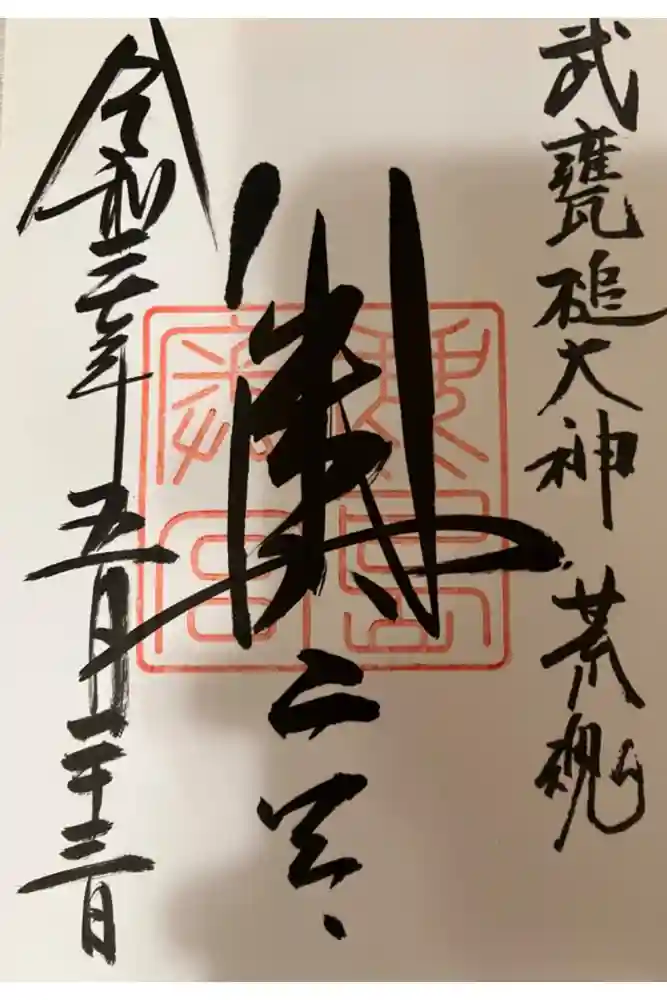 武甕槌大神 荒魂
奥宮
令和三年五月二十三日